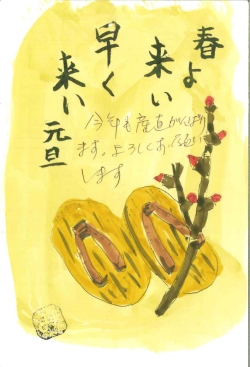 春よ
来い
早く
来い
元旦
今年も産直がんばり
ます。よろしくお願い
します